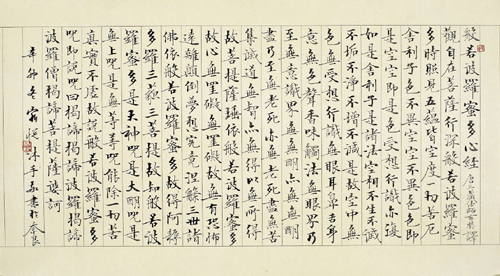 般若波羅蜜多心經 唐三藏法師玄奘譯
觀自在菩薩行深般若波羅蜜
多時照見五蘊皆空度一切苦厄
舍利子色不異空空不異色色即
是空空即是色受想行識亦復
如是舍利子是諸法空相不生不滅
不垢不淨不增不減是故空中無
色無受想行識無眼耳鼻舌身
意無色聲香味觸法無眼界乃
至無意識界無無明亦無無明
盡乃至無老死亦無老死盡無苦
集滅道無智亦無得以無所得
故菩提薩埵依般若波羅蜜多
故心無罣礙無罣礙故無有恐怖
遠離顛倒夢想究竟涅槃三世諸
佛依般若波羅蜜多故得阿耨
多羅三藐三菩提故知般若波
羅蜜多是大神呪是大明呪是
無上呪是無等等呪能除一切苦
真實不虛故說般若波羅蜜多
呪即說呪曰揭諦揭諦波羅揭諦
波羅僧揭諦菩提薩婆訶
辛卯冬 沐手敬書於奈良